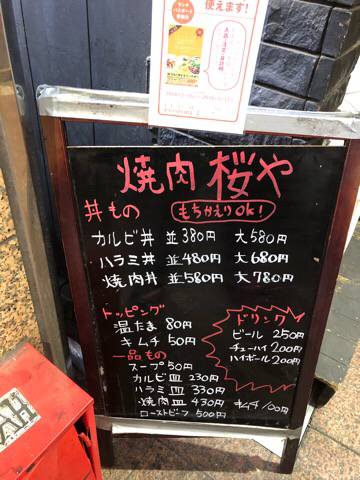 使えます!
焼肉 桜や
丼もの もちかえりOK!
カルビ丼 並380円 大580円
ハラミ丼 並480円 大680円
焼肉丼 並580円 大780円
トッピング
温たま 80円
キムチ 50円
一品もの
スープ 50円
カルビ皿 230円
ハラミ皿 330円
焼肉皿 430円
ローストビーフ 500円
ドリンク
ビール 250円
チューハイ 200円
ハイボール 200円
キムチ 100円